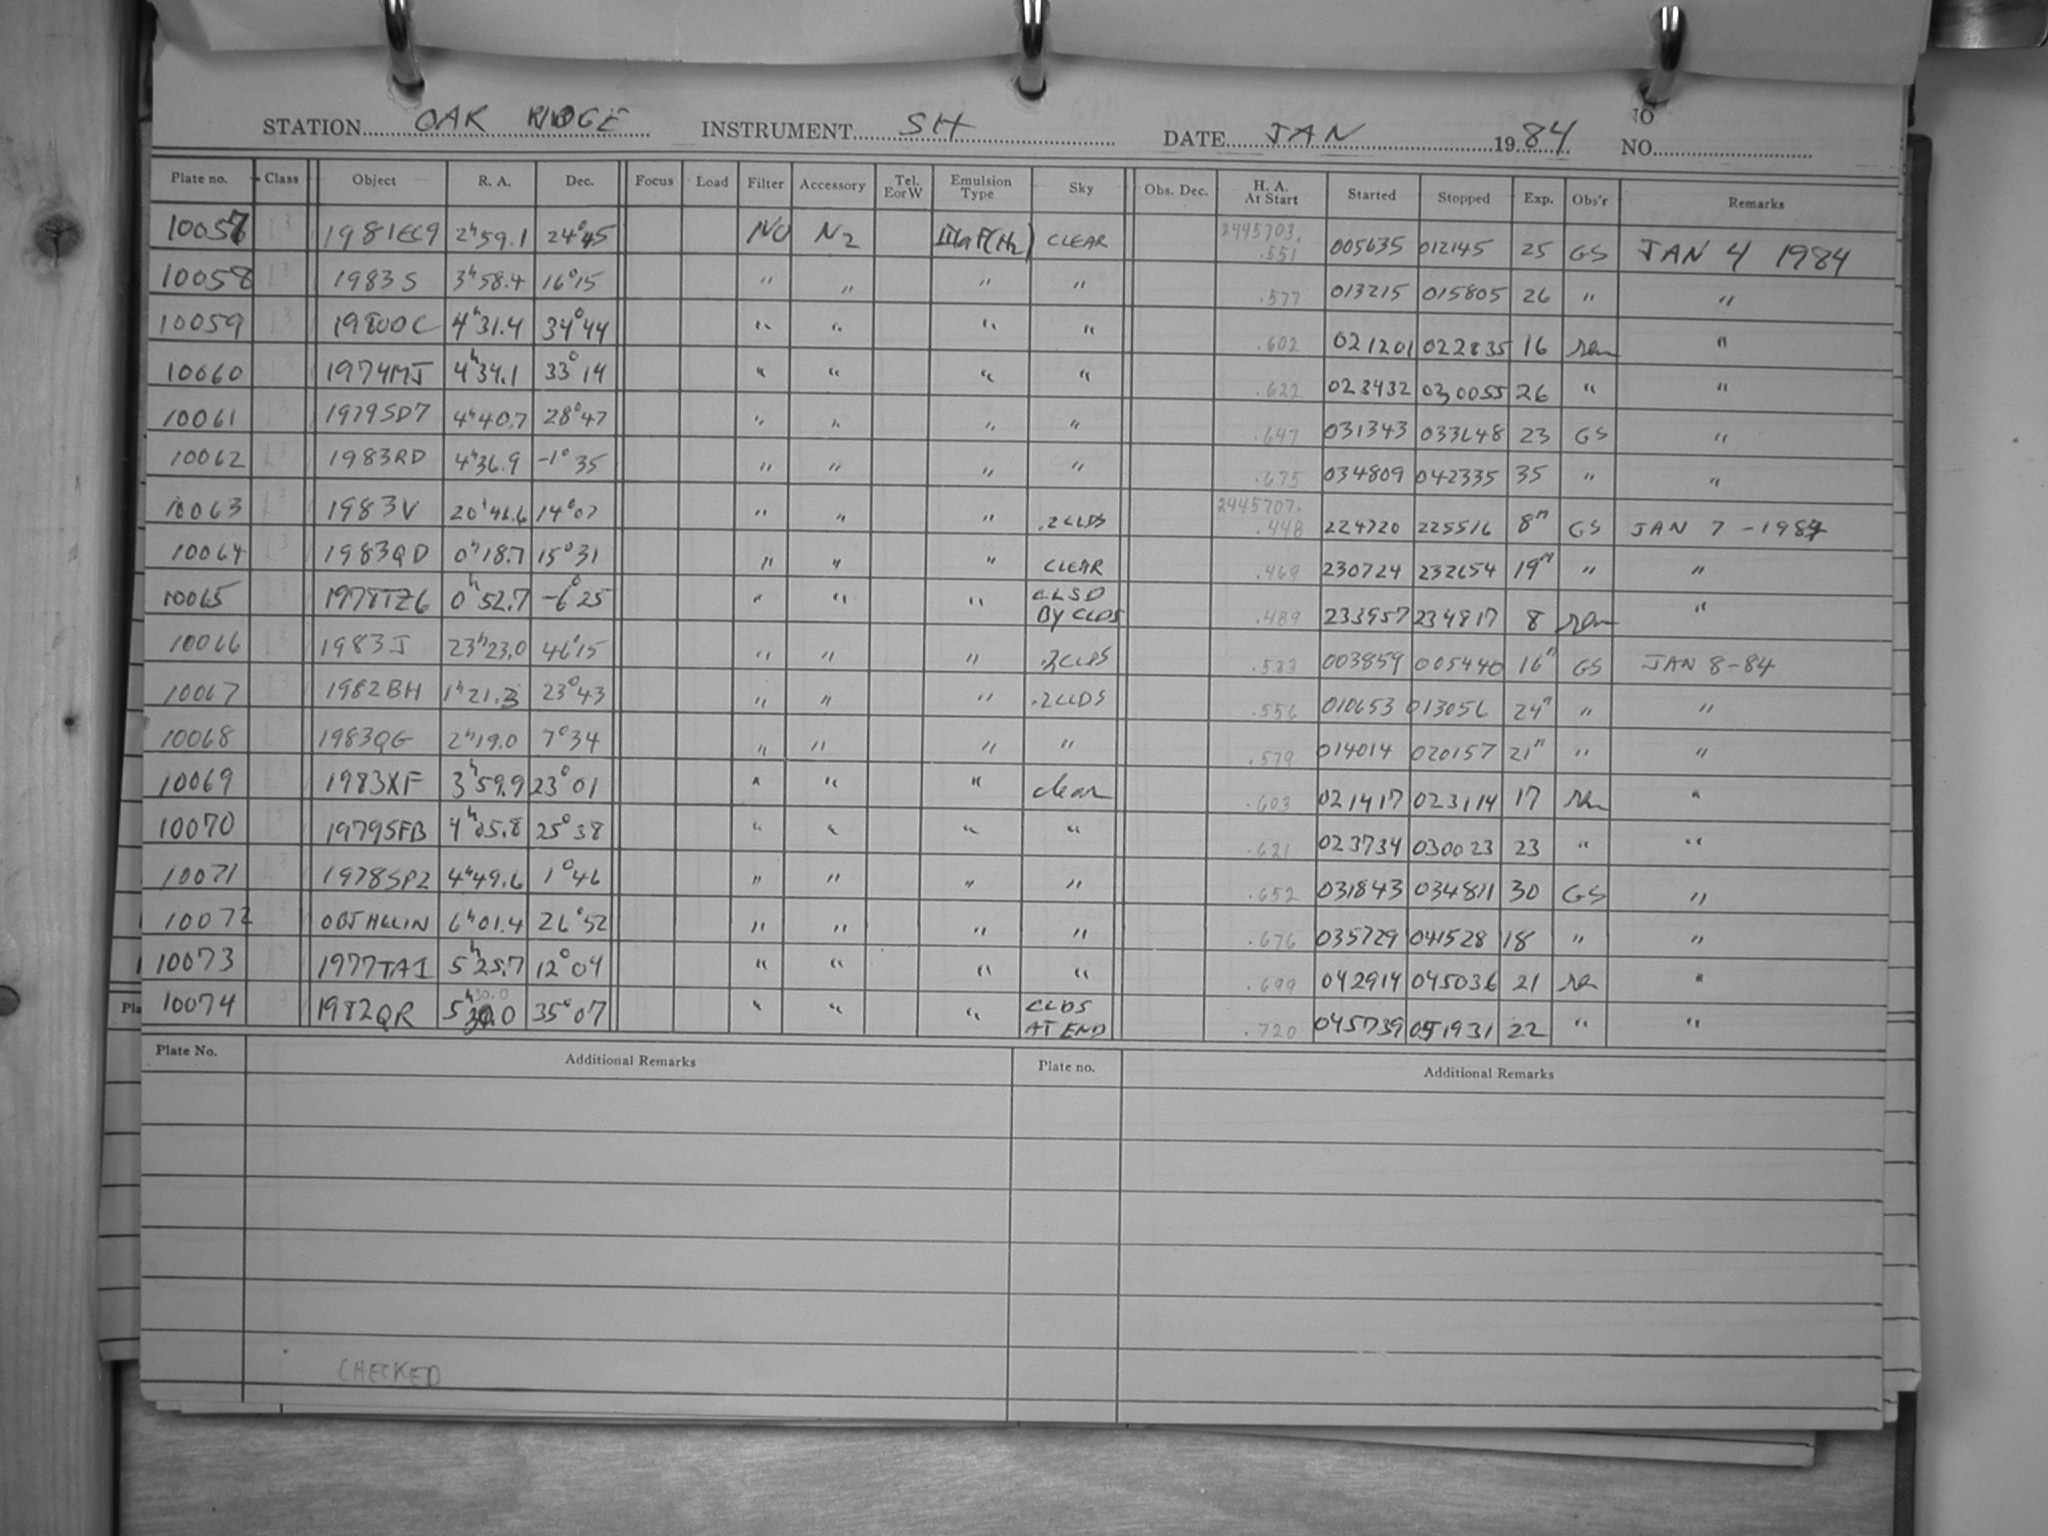 STATION OAK RIDGE INSTRUMENT SH DATE JAN 1984 NO
NO.
Plate no. Class Object R. A. Dec. Focus Load Filter Accessory Tel. E or W Emulsion Type Sky Obs. Dec. H. A. At Start Started Stopped Exp. Obs'r Remarks
10057 L3 1981EC9 2h59.1 24°45 NO N2 IIIaF(H2) CLEAR 2445703. .551 005635 012145 25 GS JAN 4 1984
10058 L3 1983S 3h58.4 16°15 " " " " .577 013215 015805 26 " "
10059 L3 1980OC 4h31.4 34°44 " " " " .602 021201 022835 16 rem "
10060 1974MJ 4h34.1 33°14 " " " " .622 023432 030055 26 " "
10061 1979SD7 4h40.7 28°47 " " " " .647 031343 033648 23 GS "
10062 L3 1983RD 4h36.9 -1°35 " " " " .675 034809 042335 35 " "
10063 L3 1983V 20h48.6 14°07 " " " .2CLDS 2445707. .448 224720 225516 8m GS JAN 7 - 1984
10064 L3 1983QD 0h18.7 15°31 " " " CLEAR .469 230724 232654 19m " "
10065 L3 1978TZ6 0h52.7 -6°25 " " " CLSD BY CLDS .489 233957 234817 8 rem "
10066 1983J 23h23.0 46°15 " " " .2CLDS .533 003859 005440 16m GS JAN 8-84
10067 1982BH 1h21.3 23°43 " " " .2CLDS .556 010653 013056 24m " "
10068 1983QG 2h19.0 7°34 " " " " .579 014014 020157 21m " "
10069 L3 1983XF 3h59.9 23°01 " " " clear .603 021417 023114 17 rem "
10070 1979SFB 4h05.8 25°38 " " " " .621 023734 030023 23 " "
10071 L3 1978SP2 4h49.6 1°46 " " " " .652 031843 034811 30 GS "
10072 OBJHELIN 6h01.4 26°52 " " " " .676 035729 041528 18 " "
10073 1977TA1 5h25.7 12°04 " " " " .699 042914 045036 21 rem "
10074 1982QR 5h30.0 30.0 35°07 " " " CLDS AT END .720 045739 051931 22 " "
Pla
Plate No. Additional Remarks Plate no. Additional Remarks
CHECKED